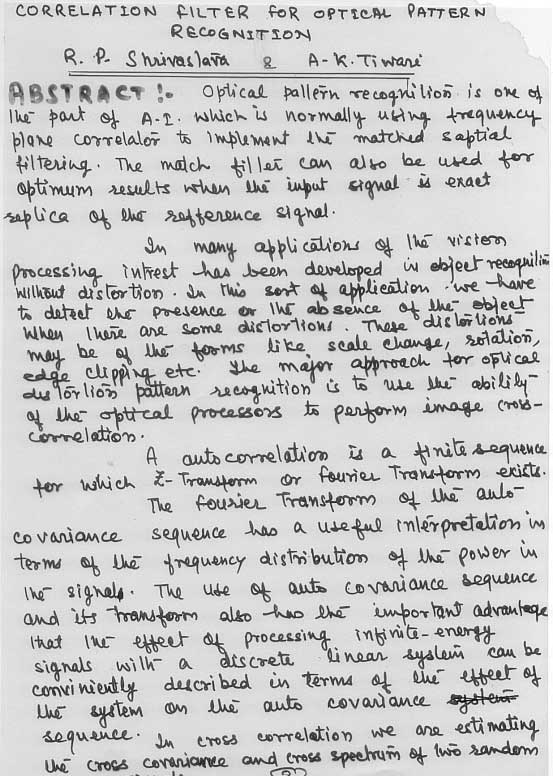 CORRELATION FILTER FOR OPTICAL PATTERN
RECOGNITION
R. P. Shrivaslava & A-K. Tiwari
ABSTRACT :- Optical pattern recognition is one of
the part of A.I. which is normally using frequency
plane correlator to implement the matched saptial
filtering. The match filter can also be used for
optimum results when the input signal is exact
replica of the refference signal.
In many applications of the vision
processing intrest has been developed in object recognition
without distortion. In this sort of application we have
to detect the presence or the absence of the object
when there are some distortions. These distortions
may be of the forms like scale change, rotation,
edge clipping etc. The major approach for optical
distortion pattern recognition is to use the ability
of the optical processors to perform image cross-
correlation.
A autocorrelation is a finite sequence
for which Z-Transform or fourier Transform exists.
The fourier Transform of the auto-
covariance sequence has a useful interpretation in
terms of the frequency distribution of the power in
the signals. The use of auto covariance sequence
and its transform also has the important advantage
that the effect of processing infinite-energy
signals with a discrete linear system can be
conviniently described in terms of the effect of
the system on the auto covariance system
sequence. In cross correlation we are estimating
the cross covariance and cross spectrum of two random